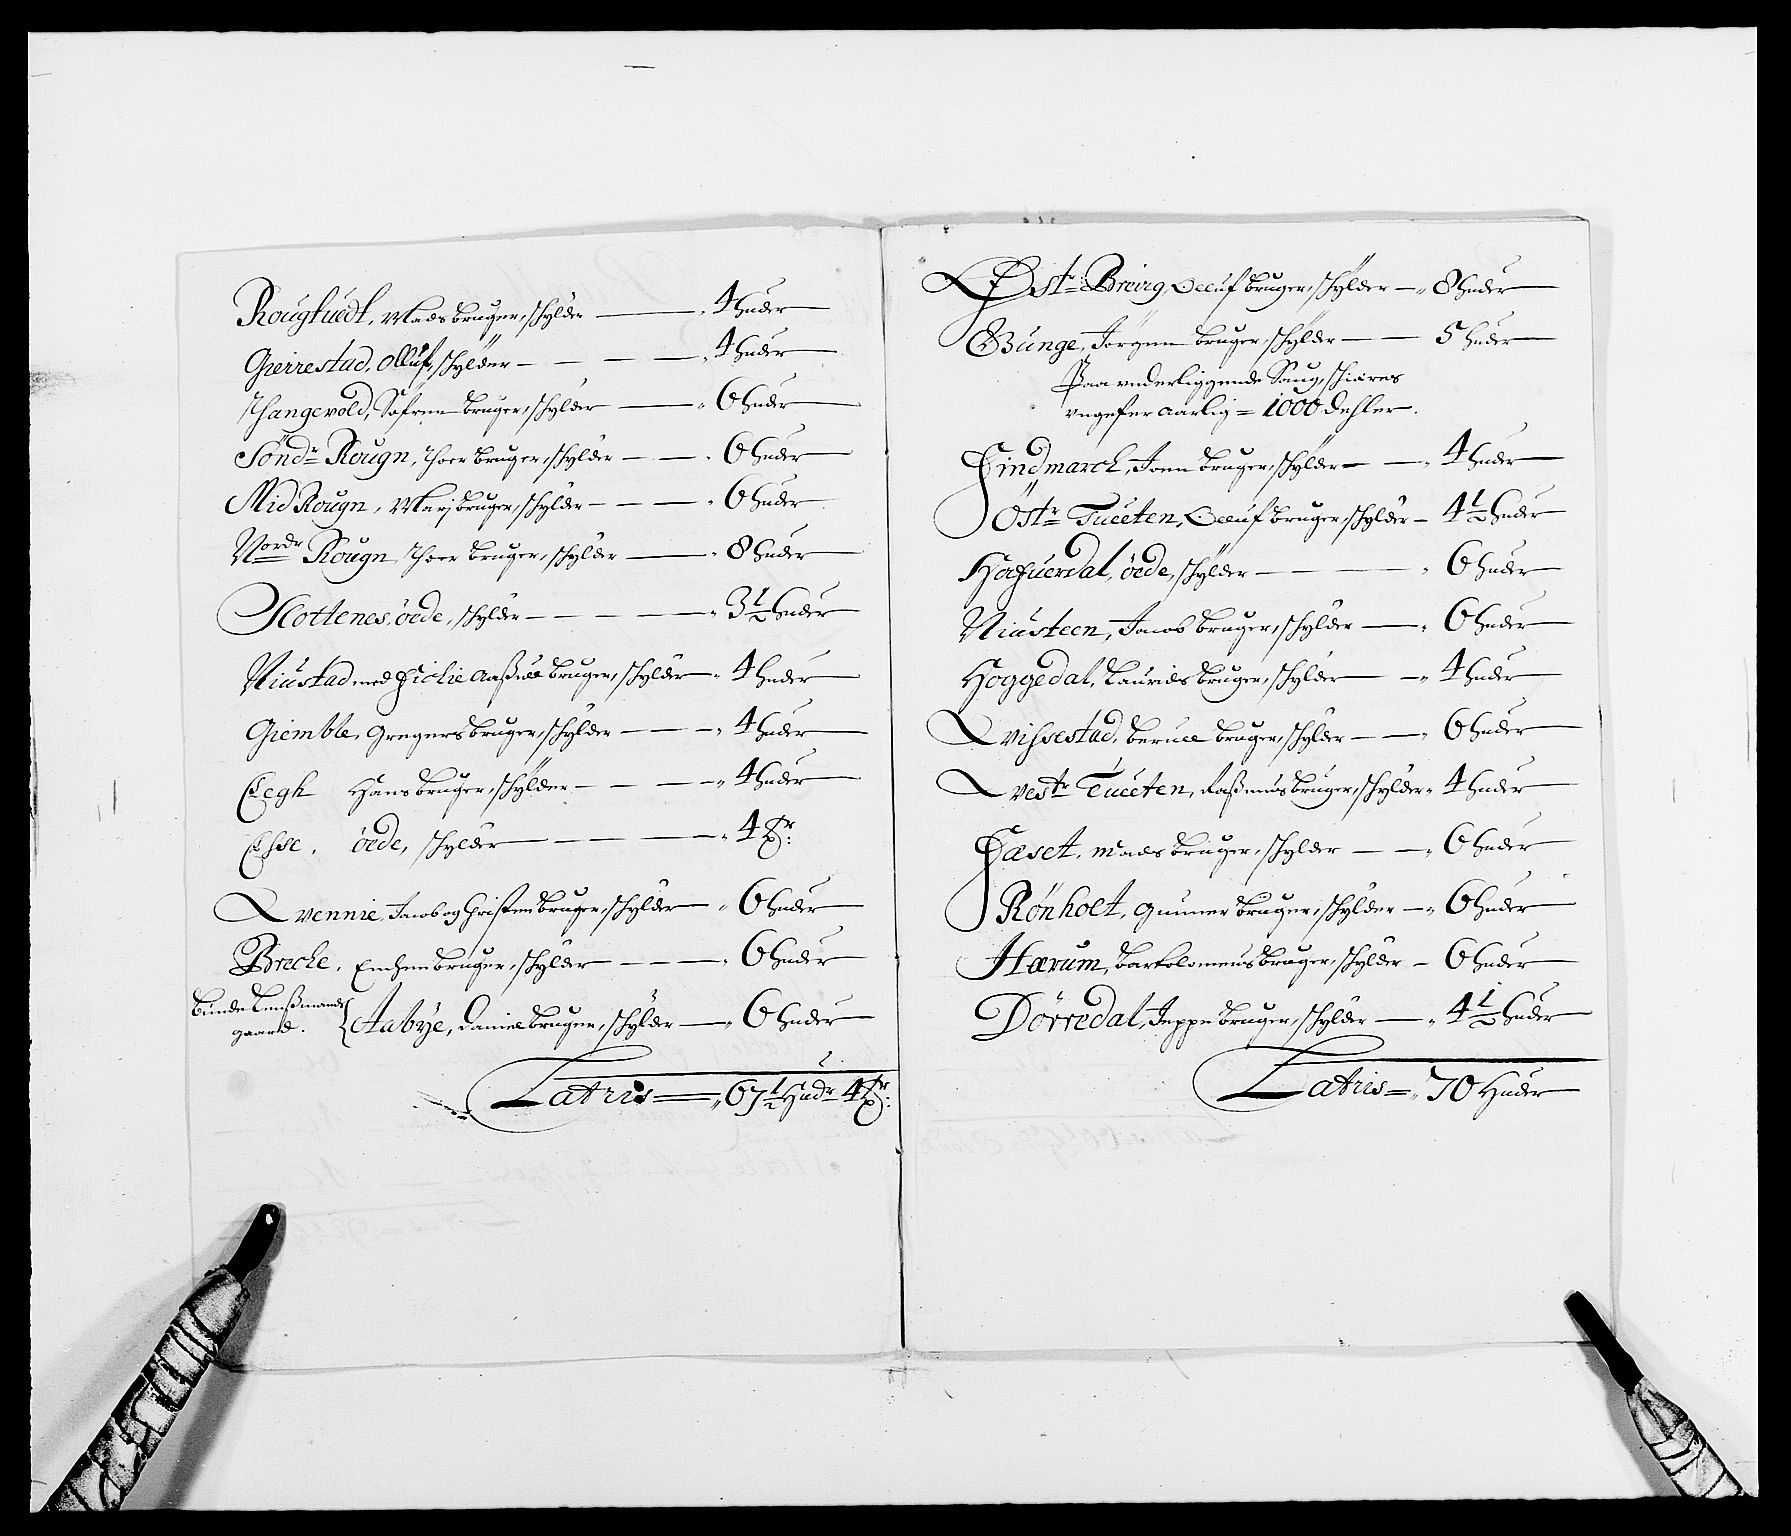 Rougtuedt, Mads bruger, schylder — 4 huder
Gierrestad, Olluf, schylder — 4 huder
Thangevold, Søfren bruger, schylder — 6 huder
Sönd:r Rougn, Thoer bruger, schylder — 6 huder
Mid Rougn, bruger, schylder — 6 huder
Nordr Rougn, Thoer bruger, schylder — 8 huder
Slottenes, öede, schylder — 3½ huder
Niustad med bruger, schylder 4 huder
Giemble, Gregers bruger, schylder — 4 huder
Eegh Hans bruger, schylder — 4 huder
Esse, öede, schylder — 4
Qvennie, Jacob og Christen bruger, schylder 6 huder
Breche, bruger, schylder — 6 huder
Bunde Lensmands
gaard. { Aabÿe, Daniel bruger, schylder — 6 huder
Latris = 67½ Hudr 4
Østr: Breirg, Oeluf bruger, schylder — 8 huder
Bunge, Jörgen bruger, schylder — 5 huder
Paa underliggende Saug, schiæres
ungefer aarlig = 1000 dehler.
Findmarch, Joen bruger, schylder — 4 huder
Östr Tueeten, Oeluf bruger, schylder — 4½ huder
Hafuerdal, öede, schylder — 6 huder
Niusteen, Jacob bruger, schylder — 6 huder
Hoggedal, Laurids bruger, schylder — 4 huder
Qvissestad, bruger, schylder — 6 huder
Vestr Tueeten, Rasmus bruger, schylder 4 huder
Faset, Mads bruger, schylder — 6 huder
Rönholt, Gunner bruger, schylder — 6 huder
Hærum, Bartolomeus bruger, schylder — 6 huder
Dörredal, Jeppe bruger, schylder — 4½ huder
Latris = 70 Huder